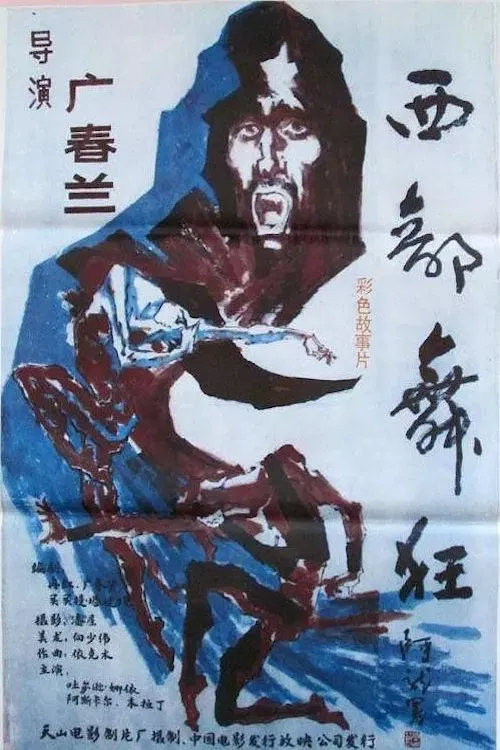 导演
广春兰
西部舞狂
彩色故事片
编剧
摄影
美龙、佃少伟
作曲、依克木
主演、
吐尔逊娜依
阿斯卡尔、木拉丁
天山电影制片厂摄制、中国电影发行放映公司发行